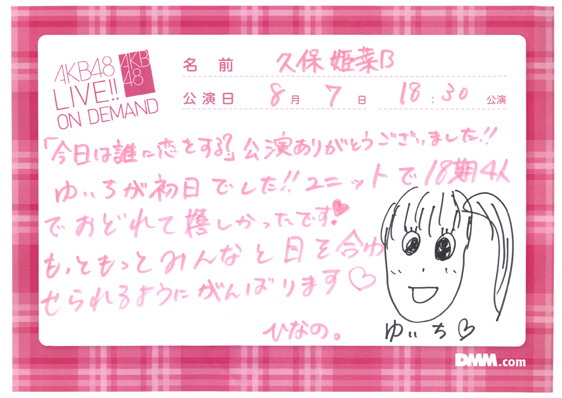 AKB48
LIVE!!
ON DEMAND
AKB
48
名前 久保姫菜乃
公演日 8月7日 18:30 公演
「今日は誰に恋をする?」公演ありがとうございました!!
ゆいちが初日でした!!ユニットで18期4人
でおどれて嬉しかったです!♥
もっともっとみんなと目を合わ
せられるようにがんばります♡
ひなの。
ゆいち♡
DMM.com